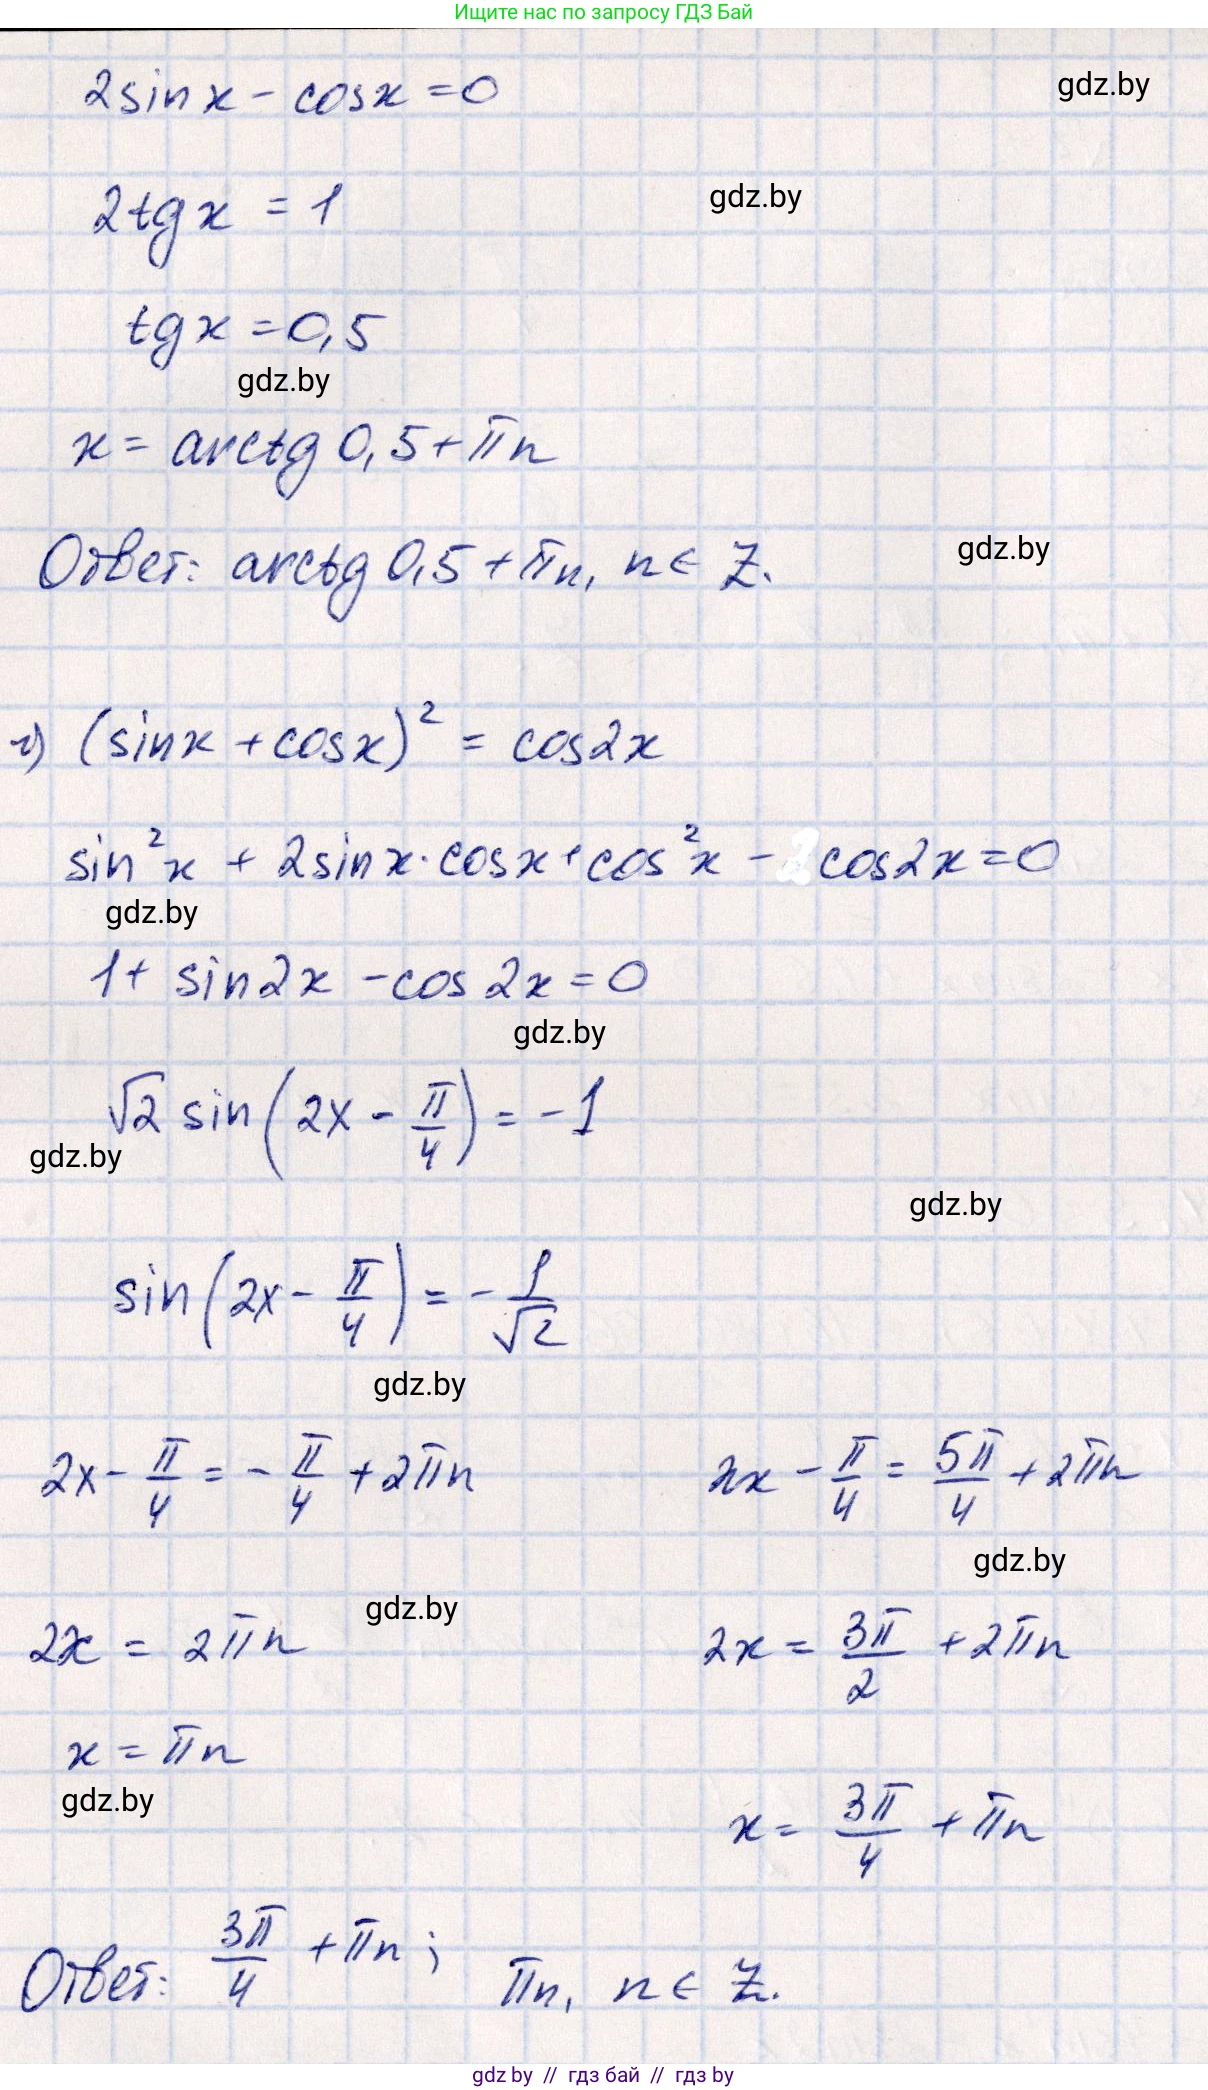 Ищите нас по запросу ГДЗ Бай
2sinx - cosx = 0
gdz.by
2tgx = 1
gdz.by
tgx = 0,5
gdz.by
x = arctg 0,5 + πn
Ответ: arctg 0,5 + πn, n ∈ Z.
gdz.by
г) (sinx + cosx)² = cos2x
sin²x + 2sinx·cosx + cos²x - cos2x = 0
gdz.by
1 + sin2x - cos2x = 0
gdz.by
√2 sin(2x - π/4) = -1
gdz.by
gdz.by
sin(2x - π/4) = -1/√2
gdz.by
2x - π/4 = -π/4 + 2πn 2x - π/4 = 5π/4 + 2πn
gdz.by
gdz.by
2x = 2πn 2x = 3π/2 + 2πn
x = πn
gdz.by
x = 3π/4 + πn
Ответ: 3π/4 + πn; πn, n ∈ Z.
gdz.by // гдз бай // гдз by